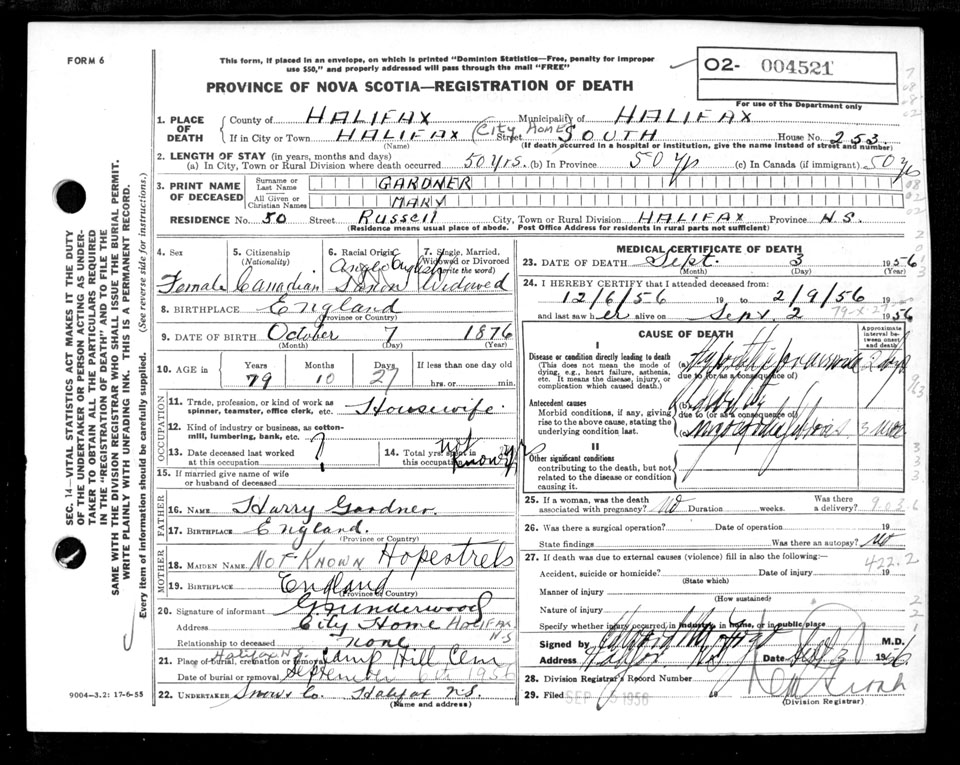 FORM 6
This form, if placed in an envelope, on which is printed "Dominion Statistics—Free, penalty for improper
use $50," and properly addressed will pass through the mail "FREE"
O2- 004521
For use of the Department only
PROVINCE OF NOVA SCOTIA—REGISTRATION OF DEATH
1. PLACE OF DEATH
County of HALIFAX Municipality of HALIFAX
If in City or Town HALIFAX (CITY HOME) Street SOUTH House No. 253
(Name) (If death occurred in a hospital or institution, give the name instead of street and number)
2. LENGTH OF STAY (in years, months and days)
(a) In City, Town or Rural Division where death occurred 50 yrs. (b) In Province 50 yrs (c) In Canada (if immigrant) 50 yrs
3. PRINT NAME OF DECEASED
Surname or Last Name GARDNER
All Given or Christian Names MARY
RESIDENCE No. 50 Street Russell City, Town or Rural Division HALIFAX Province N.S.
(Residence means usual place of abode. Post Office Address for residents in rural parts not sufficient)
4. Sex Female
5. Citizenship (Nationality) Canadian
6. Racial Origin Anglo Saxon English
7. Single, Married, Widowed or Divorced (write the word) Widowed
8. BIRTHPLACE England
(Province or Country)
9. DATE OF BIRTH October 7 1876
(Month) (Day) (Year)
10. AGE in Years Months Days If less than one day old
79 10 27 hrs. or min.
OCCUPATION
11. Trade, profession, or kind of work as
spinner, teamster, office clerk, etc. Housewife
12. Kind of industry or business, as cotton-
mill, lumbering, bank, etc.
13. Date deceased last worked
at this occupation ?
14. Total yrs. spent in
this occupation not known
15. If married give name of wife
or husband of deceased
FATHER
16. NAME Harry Gardner
17. BIRTHPLACE England.
(Province or Country)
MOTHER
18. MAIDEN NAME NOT KNOWN
19. BIRTHPLACE England
(Province or Country)
20. Signature of informant G Underwood
Address City Home HALIFAX N.S
Relationship to deceased None
21. Place of burial, cremation or removal Halifax N.S. Camp Hill Cem
Date of burial or removal September 6th 1956
22. UNDERTAKER Snows Co. Halifax N.S.
(Name and address)
MEDICAL CERTIFICATE OF DEATH
23. DATE OF DEATH Sept. 3 1956
(Month) (Day) (Year)
24. I HEREBY CERTIFY that I attended deceased from:
12/6/56 19 to 2/9/56 19
and last saw her alive on Sept. 2 1956
79-X-27
CAUSE OF DEATH
Approximate interval between onset and death
I
Disease or condition directly leading to death
(This does not mean the mode of
dying, e.g., heart failure, asthenia,
etc. It means the disease, injury, or
complication which caused death.)
(a)
due to (or as a consequence of)
2 days
Antecedent causes
Morbid conditions, if any, giving
rise to the above cause, stating the
underlying condition last.
(b)
due to (or as a consequence of)
(c)
II
Other significant conditions
contributing to the death, but not
related to the disease or condition
causing it.
25. If a woman, was the death
associated with pregnancy? No Duration weeks. Was there a delivery?
26. Was there a surgical operation? Date of operation 19
State findings Was there an autopsy? No
27. If death was due to external causes (violence) fill in also the following:—
422.2
Accident, suicide or homicide? Date of injury 19
(State which)
Manner of injury
(How sustained)
Nature of injury
Specify whether injury occurred in industry, in home, or in public place
Signed by M.D.
Address Date Sept 3 1956
28. Division Registrar's Record Number
29. Filed SEP 1956 19
(Division Registrar)
SEC. 14—VITAL STATISTICS ACT MAKES IT THE DUTY
OF THE UNDERTAKER OR PERSON ACTING AS UNDER-
TAKER TO OBTAIN ALL THE PARTICULARS REQUIRED
IN THE "REGISTRATION OF DEATH" AND TO FILE THE
SAME WITH THE DIVISION REGISTRAR WHO SHALL ISSUE THE BURIAL PERMIT.
WRITE PLAINLY WITH UNFADING INK. THIS IS A PERMANENT RECORD.
Every item of information should be carefully supplied. (See reverse side for instructions.)
9004-3.2: 17-6-55